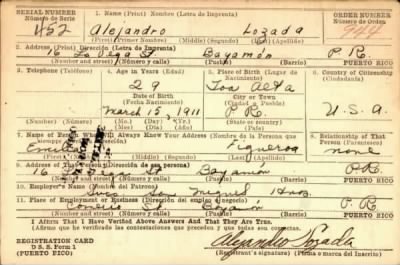 SERIAL NUMBER 1. Name (Print) Nombre (Letra de Imprenta) ORDER NUMBER
Número de Serie Número de Orden
452 Alejandro Lozada 944
(First) (Primer Nombre) (Middle) (Segundo Nombre) (Last) (Apellido)
2. Address (Print) Dirección (Letra de Imprenta)
16 Vega St. Bayamón P. R.
(Number and street) (Número y calle) (Town) PUEBLO PUERTO RICO
3. Telephone (Teléfono) 4. Age in Years (Edad) 5. Place of Birth (Lugar de Nacimiento) 6. Country of Citizenship (Ciudadanía)
29 Toa Alta
Date of Birth (Fecha Nacimiento) (Town or County) CITY (Ciudad o Pueblo)
March 15, 1911 P. R. U. S. A.
(Mo.) (Day) (Yr.) (State or country)
7. Name of Person Who Will Always Know Your Address (Nombre de la Persona que 8. Relationship of That Person (Parentesco)
Figueroa none
(Last) (Apellido)
9. Address of That Person (Dirección de esa persona)
16 Vega St. Bayamón P.R.
(Number and street) (Número y calle) PUEBLO PUERTO RICO
10. Employer's Name (Nombre del Patrono)
Luis San Miguel Hnos.
11. Place of Employment or Business (Dirección del empleo o negocio)
Comerio St. Bayamón P. R.
(Number and street) (Número y calle) PUEBLO PUERTO RICO
I Affirm That I Have Verified Above Answers And That They Are True.
(Afirmo que he verificado las contestaciones que preceden y que todas son correctas)
REGISTRATION CARD
D. S. S. Form 1
(PUERTO RICO)
Alejandro Lozada
(Registrant's signature) (Firma o marca del Inscrito)